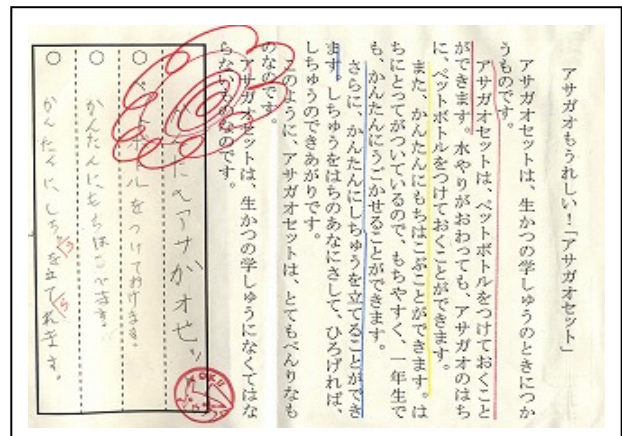 アサガオもうれしい!「アサガオセット」
アサガオセットは、生かつの学しゅうのときにつか
うものです。
アサガオセットは、ペットボトルをつけておくこと
ができます。水やりがおわっても、アサガオのはち
に、ペットボトルをつけておくことができます。
また、かんたんにもちはこぶことができます。は
ちにとってがついているので、もちやすく、一年生で
も、かんたんにうごかせることができます。
さらに、かんたんにしちゅうを立てることができ
ます。しちゅうをはちのあなにさして、ひろげれば、
しちゅうのできあがりです。
このように、アサガオセットは、とてもべんりなも
のなのです。
アサガオセットは、生かつの学しゅうになくてはな
らないものなのです。
「アサガオセッ
ペットボトルをつけておけます。
かんたんにもちはこべます。
かんたんに、しちゅうを立てれます。
ら